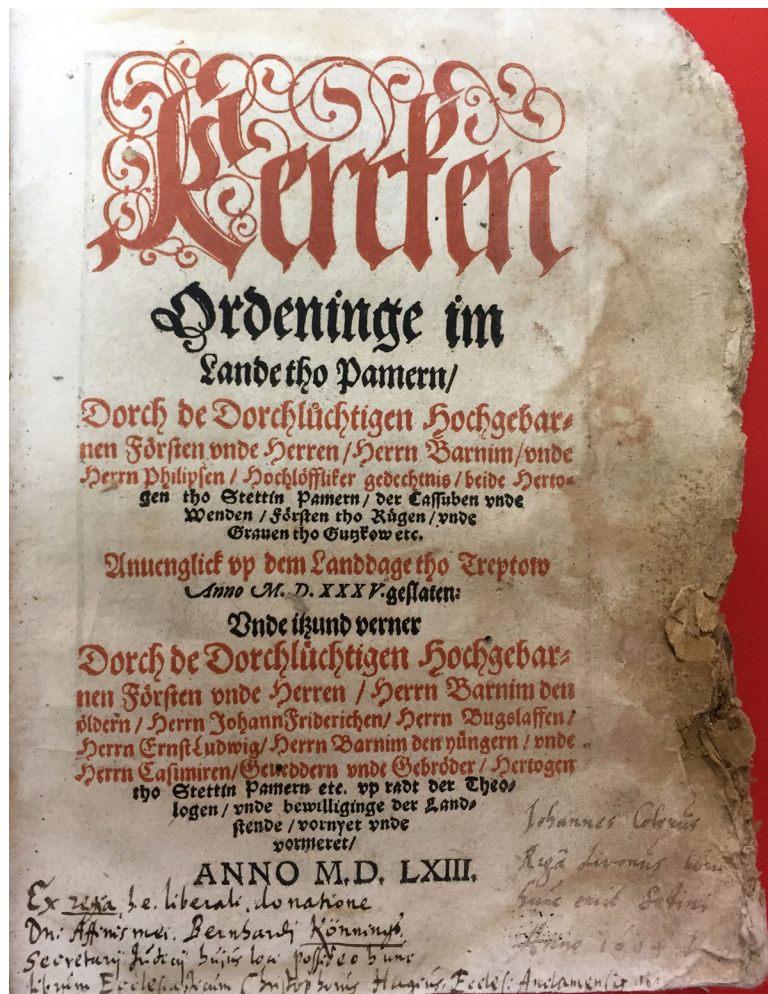 Kercken
Ordeninge im
Lande tho Pamern/
Dorch de Dorchlůchtigen Hochgebar⸗
nen Försten vnde Herren/Herrn Barnim/vnde
Herrn Philipsen / Hochlöffliker gedechtnis / beide Herto⸗
gen tho Stettin Pamern / der Cassuben vnde
Wenden / Försten tho Rügen / vnde
Grauen tho Gutzkow etc.
Anuenglick vp dem Landdage tho Treptow
Anno M. D. XXXV. geslaten:
Vnde itzund verner
Dorch de Dorchlüchtigen Hochgebar⸗
nen Försten vnde Herren / Herrn Barnim den
öldern / Herrn JohannFriderichen/ Herrn Bugslaffen /
Herrn ErnstLudwig/ Herrn Barnim den yüngern / vnde
Herrn Casimiren/Geueddern vnde Gebröder / Hertogen
tho Stettin Pamern etc. vp radt der Theo⸗
logen / vnde bewilliginge der Land⸗
stende / vornyet vnde
vormeret/
ANNO M.D. LXIII.
Johannes
Rigâ Livonus
hunc emit
Anno
Ex regia, h.e. liberali, donatione
Dn: Affinis mei. Bernhardj Könnings,
Secretarij Judicij hujus loci possideo hunc
librum Ecclesiasticum Christophorus Hagius, Ecclesi: Anclamensis